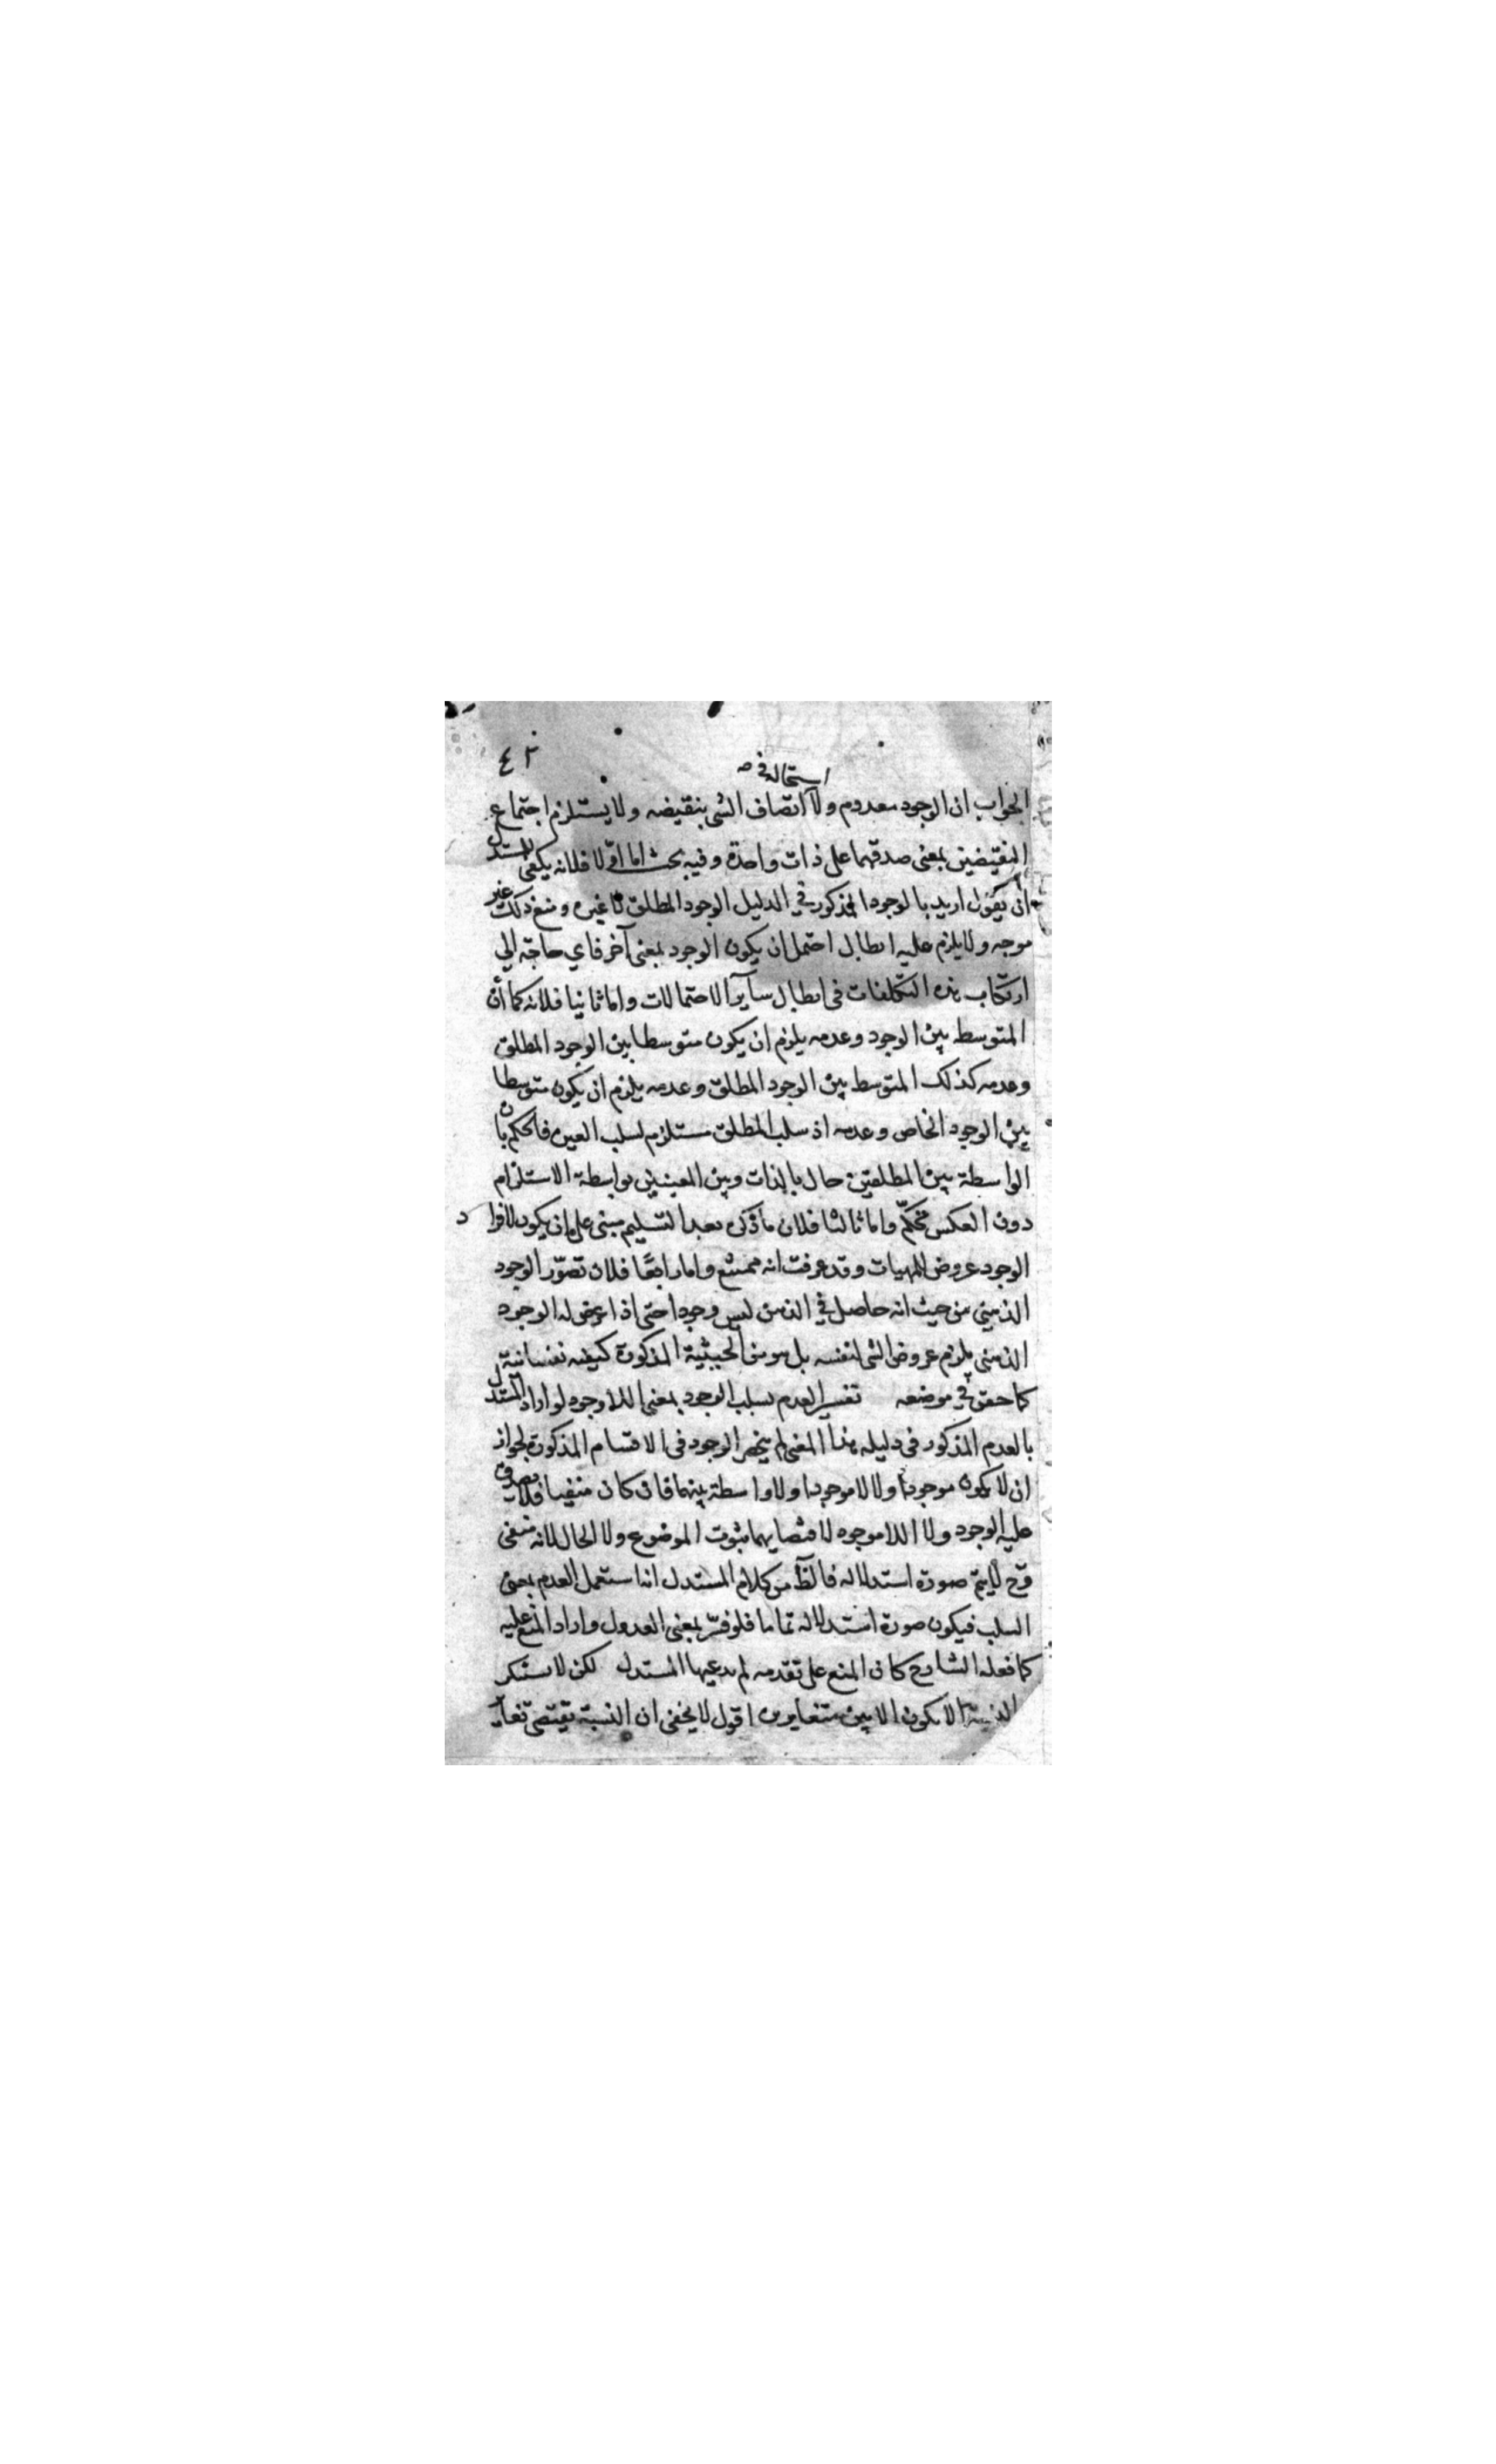 ٤٢
استحالة في
الجواب ان الوجود معدوم ولا اتصاف الشى بنقيضه ولا يستلزم اجتماع
النقيضين بمعنى صدقهما على ذات واحدة وفيه بحث اما اولا فلانه يكفى للمستدل
ان يقول اريد بالوجود المذكور في الدليل الوجود المطلق لا غيره ومنع ذلك غير
موجه ولا يلزم عليه ابطال احتمل ان يكون الوجود بمعنى آخر فاي حاجة الي
ارتكاب هذه التكلفات في ابطال سآير الاحتمالات واما ثانيا فلانه كما أن
المتوسط بين الوجود وعدمه يلزم ان يكون متوسطا بين الوجود المطلق
وعدمه كذلك المتوسط بين الوجود المطلق وعدمه يلزم ان يكون متوسطا
بين الوجود الخاص وعدمه اذ سلب المطلق مستلزم لسلب العين فالحكم بان
الواسطة بين المطلقين حال بالذات وبين المعينين بواسطة الاستلزام
دون العكس تحكّم واما ثالثا فلان ما ذكره بعد التسليم مبنى على ان يكون لافراد
الوجود عروض للمهيات وقد عرفت انه ممتنع واما رابعًا فلان تصوّر الوجود
الذهني من حيث انه حاصل في الذهن ليس وجودا حتى اذا عرض له الوجود
الذهنى يلزم عروض الشى لنفسه بل هو من الحيثية المذكورة كيفيه نفسانية
كما حقق في موضعه تفسير العدم بسلب الوجود بمعنى اللا وجود لو اراد المستدل
بالعدم المذكور في دليله هذا المعنى لم ينحصر الوجود في الاقسام المذكورة لجواز
ان لا يكون موجودا ولا لا موجودا ولا واسطة بينهما فان كان منفيا فلا يصدق
عليه الوجود ولا اللا موجود لاقتضايهما ثبوت الموضوع ولا الحال لانه منفى
وح لا يتم صورة استدلاله فالظ من كلام المستدل انه استعمل العدم بمعنى
السلب فيكون صورة استدلاله تماما فلو فسّر بمعنى العدول واراد المنع عليه
كما فعله الشارح كان المنع على تقدمه لم يدعيها المستدل لكن لا ستكر
النسبة لا يكون الا بين متغايرين اقول لا يخفى ان النسبة تقتضى تغاير